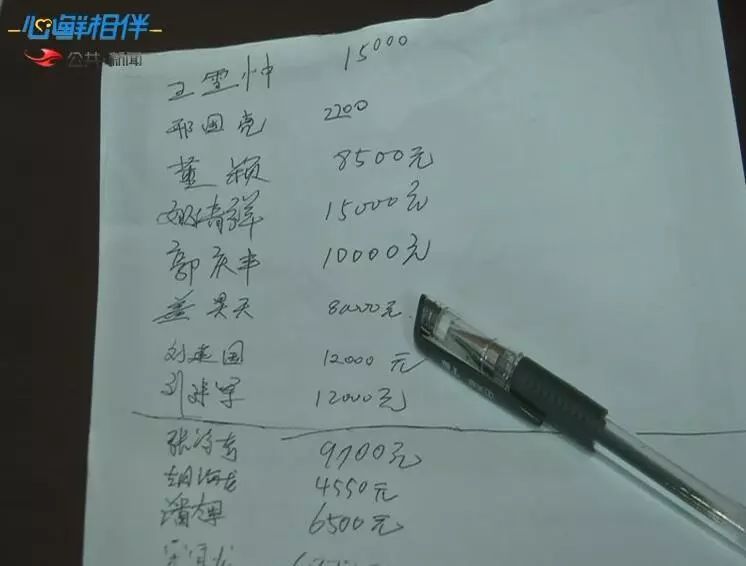 心鲜相伴
公共·新闻
王雪帅 15000
邢国亮 2200
董颖 8500元
15000元
郭庆丰 10000元
姜昊天 8000元
刘建国 12000元
12000元
张 9700元
胡海龙 4550元
潘 6500元